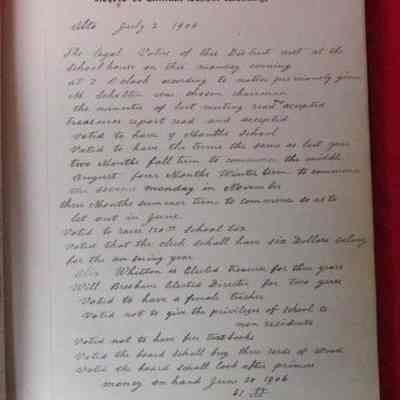 Alto July 2 1906
The legal Voters of this District met at the
school house on this monday evening
at 7 O clock acording to notice previously given
M. Scholten was chosen chairman
the minutes of last meeting read and accepted
treasurer report read and accepted
Voted to have 9 Months School
Voted to have the terms the same as last year
two Months fall term to commence the middle
August four Months Winter term to commence
the second monday in November
three Months summer term to commence so as to
let out in June
Voted to raise school tax
Voted that the clerk schall have six Dollars salary
for the ensuing year
Whitton is Elected treasurer for three years
Will Elected Director for two years
Voted to have a female teacher
Voted not to give the privileges of school to
non residents
Voted not to have free textbooks
Voted the board schall buy three cords of Wood
Voted the board schall look after
money on hand June 30 1906